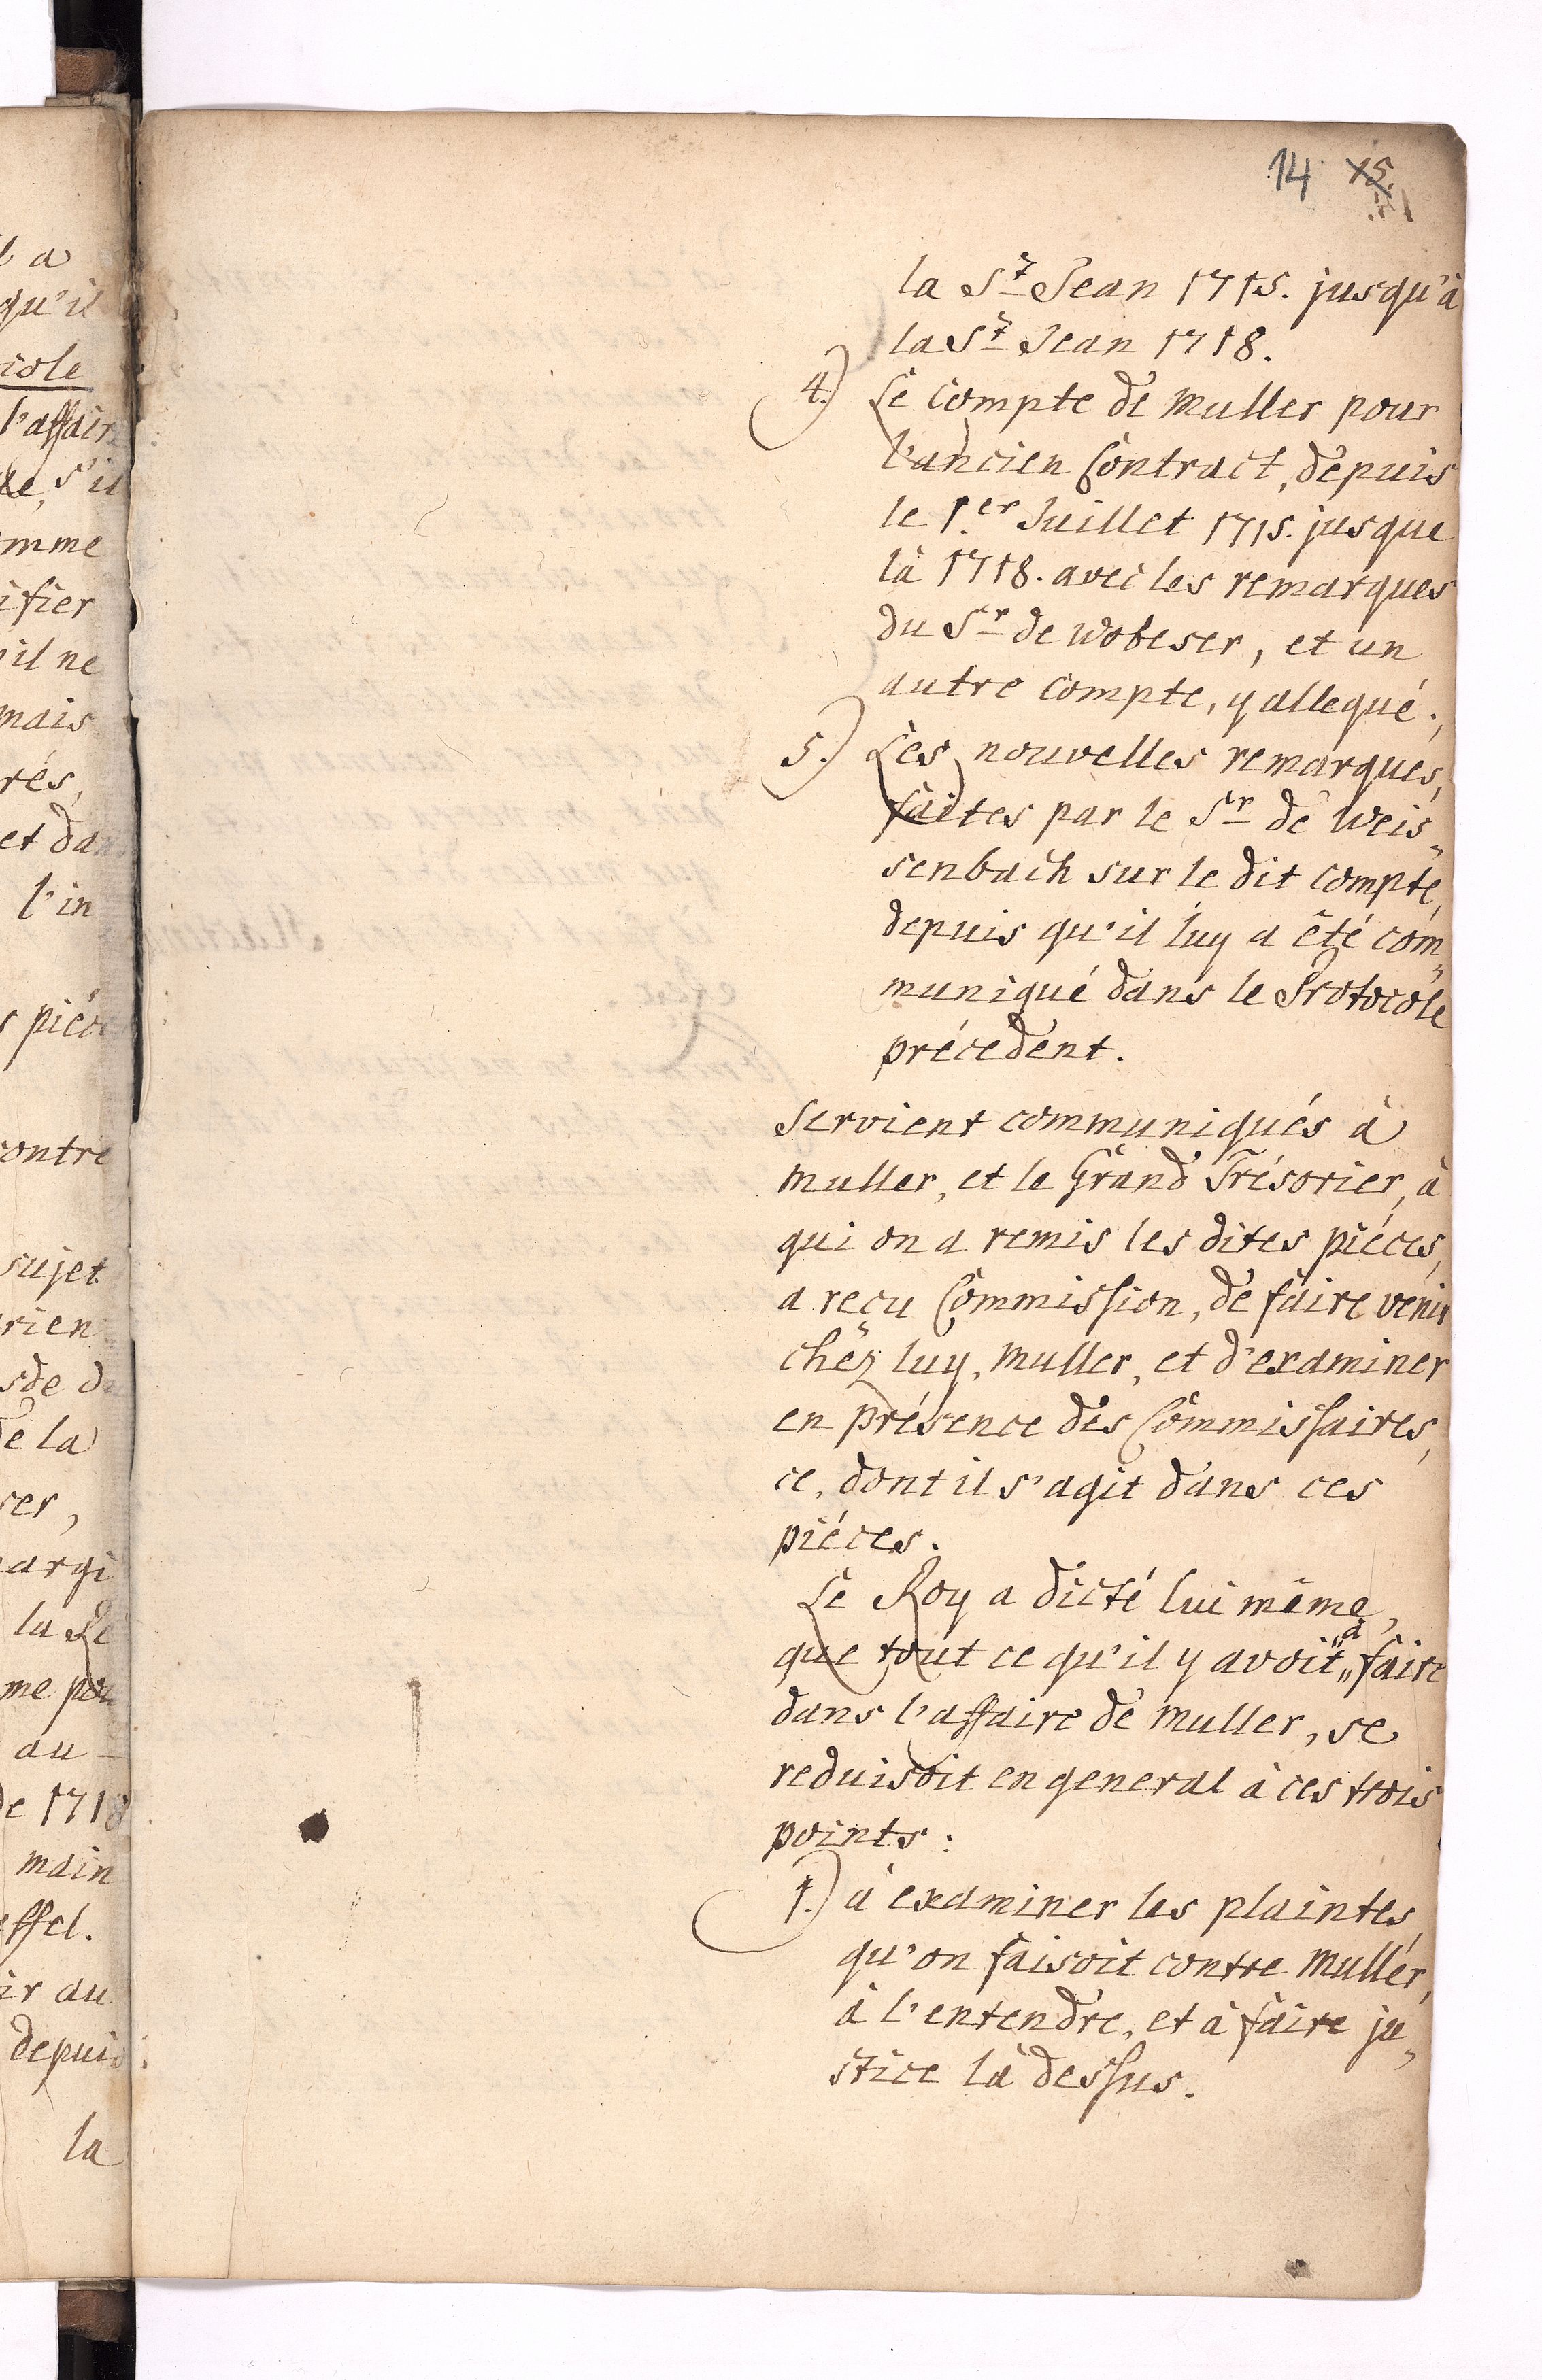 14 15.
la St Jean 1715. jusqu'à
la St Jean 1718.
4.) Le Compte de Muller pour
l'ancien Contract, depuis
le 1.er Juillet 1715. jusque
là 1718. avec les remarques
du Sr de Wobeser, et un
autre compte, y allegué.
5.) Les nouvelles remarques,
faites par le Sr de Weis„
senbach sur le dit compte,
depuis qu'il luy a êté com„
muniqué dans le Protocole
précedent.
Servient communiqués à
Muller, et le Grand Trésorier, à
qui on a remis les dites piéces,
a reçu Commission, de faire venir
chéz luy, Muller, et d'examiner
en présence des Commissaires,
ce, dont il s'agit dans ces
piéces.
Le Roy a dicté lui même,
que tout ce qu'il y avoit à faire
dans l'affaire de Muller, se
reduisoit en general à ces trois
points:
1.) à examiner les plaintes,
qu'on faisoit contre Muller,
à l'entendre, et à faire ju„
stice là dessus.
l a
qu'il
icole
l'affair
s'il
omme
ifier
il ne
mais
rés,
et dan
l'in
s piéce
contre
sujet
rien
sde d
de la
ser,
argi
la Re
me pou
au
de 1718
main
effel.
ir au
depuis
la